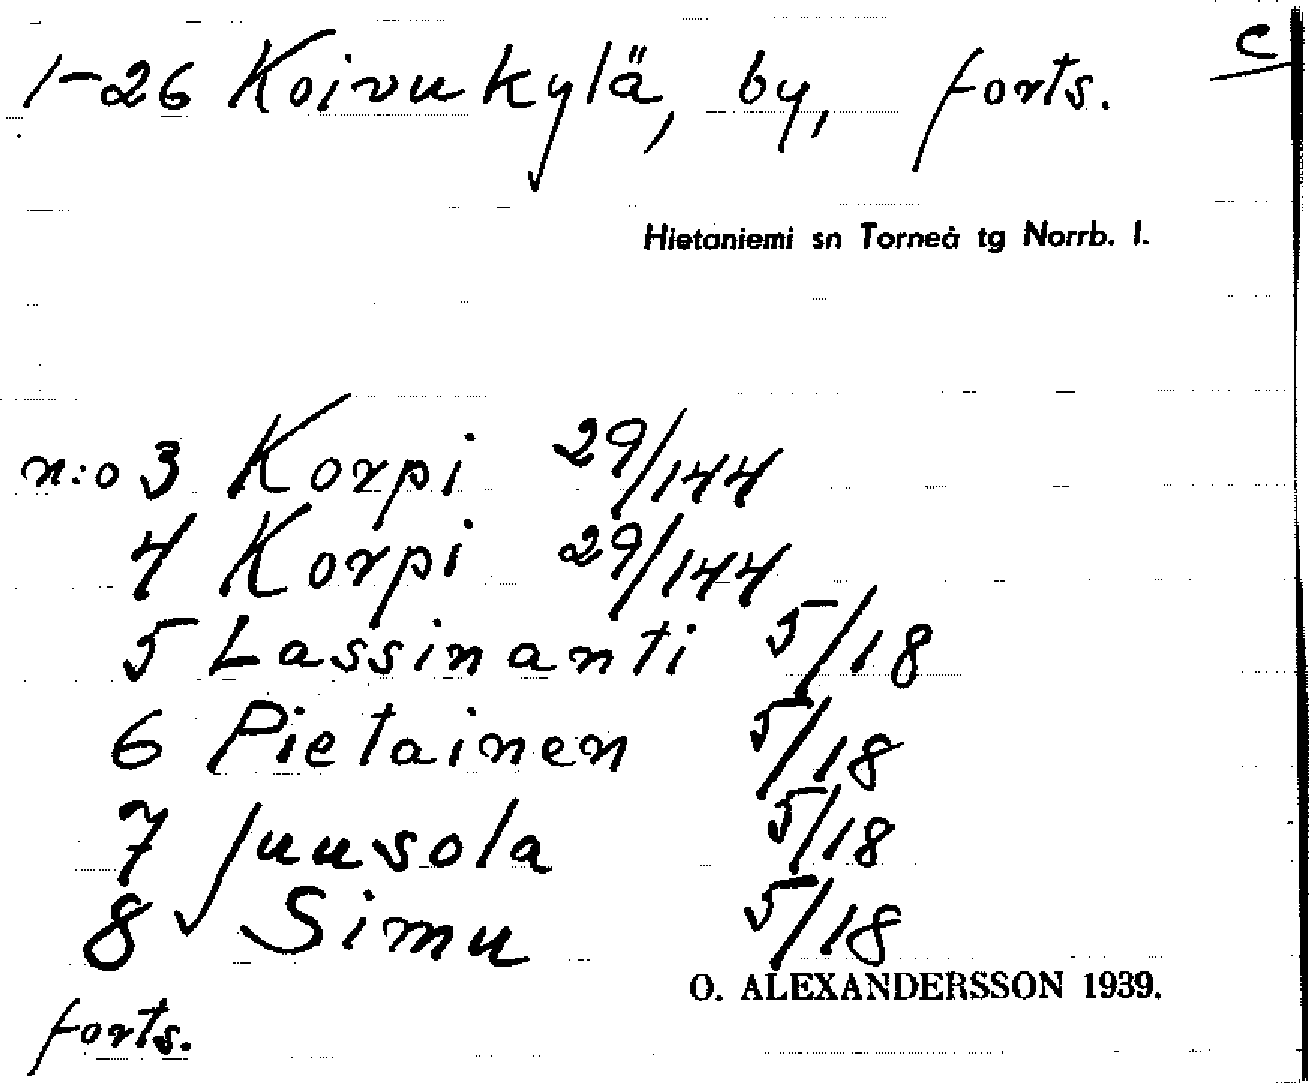 c
1-26 Koivukylä, by, forts.
Hietaniemi sn Torneå tg Norrb. l.
n:o 3 Korpi 29/144
4 Korpi 29/144
5 Lassinanti 5/18
6 Pietainen 5/18
7 Juusola 5/18
8 Simu 5/18
O. ALEXANDERSSON 1939.
forts.